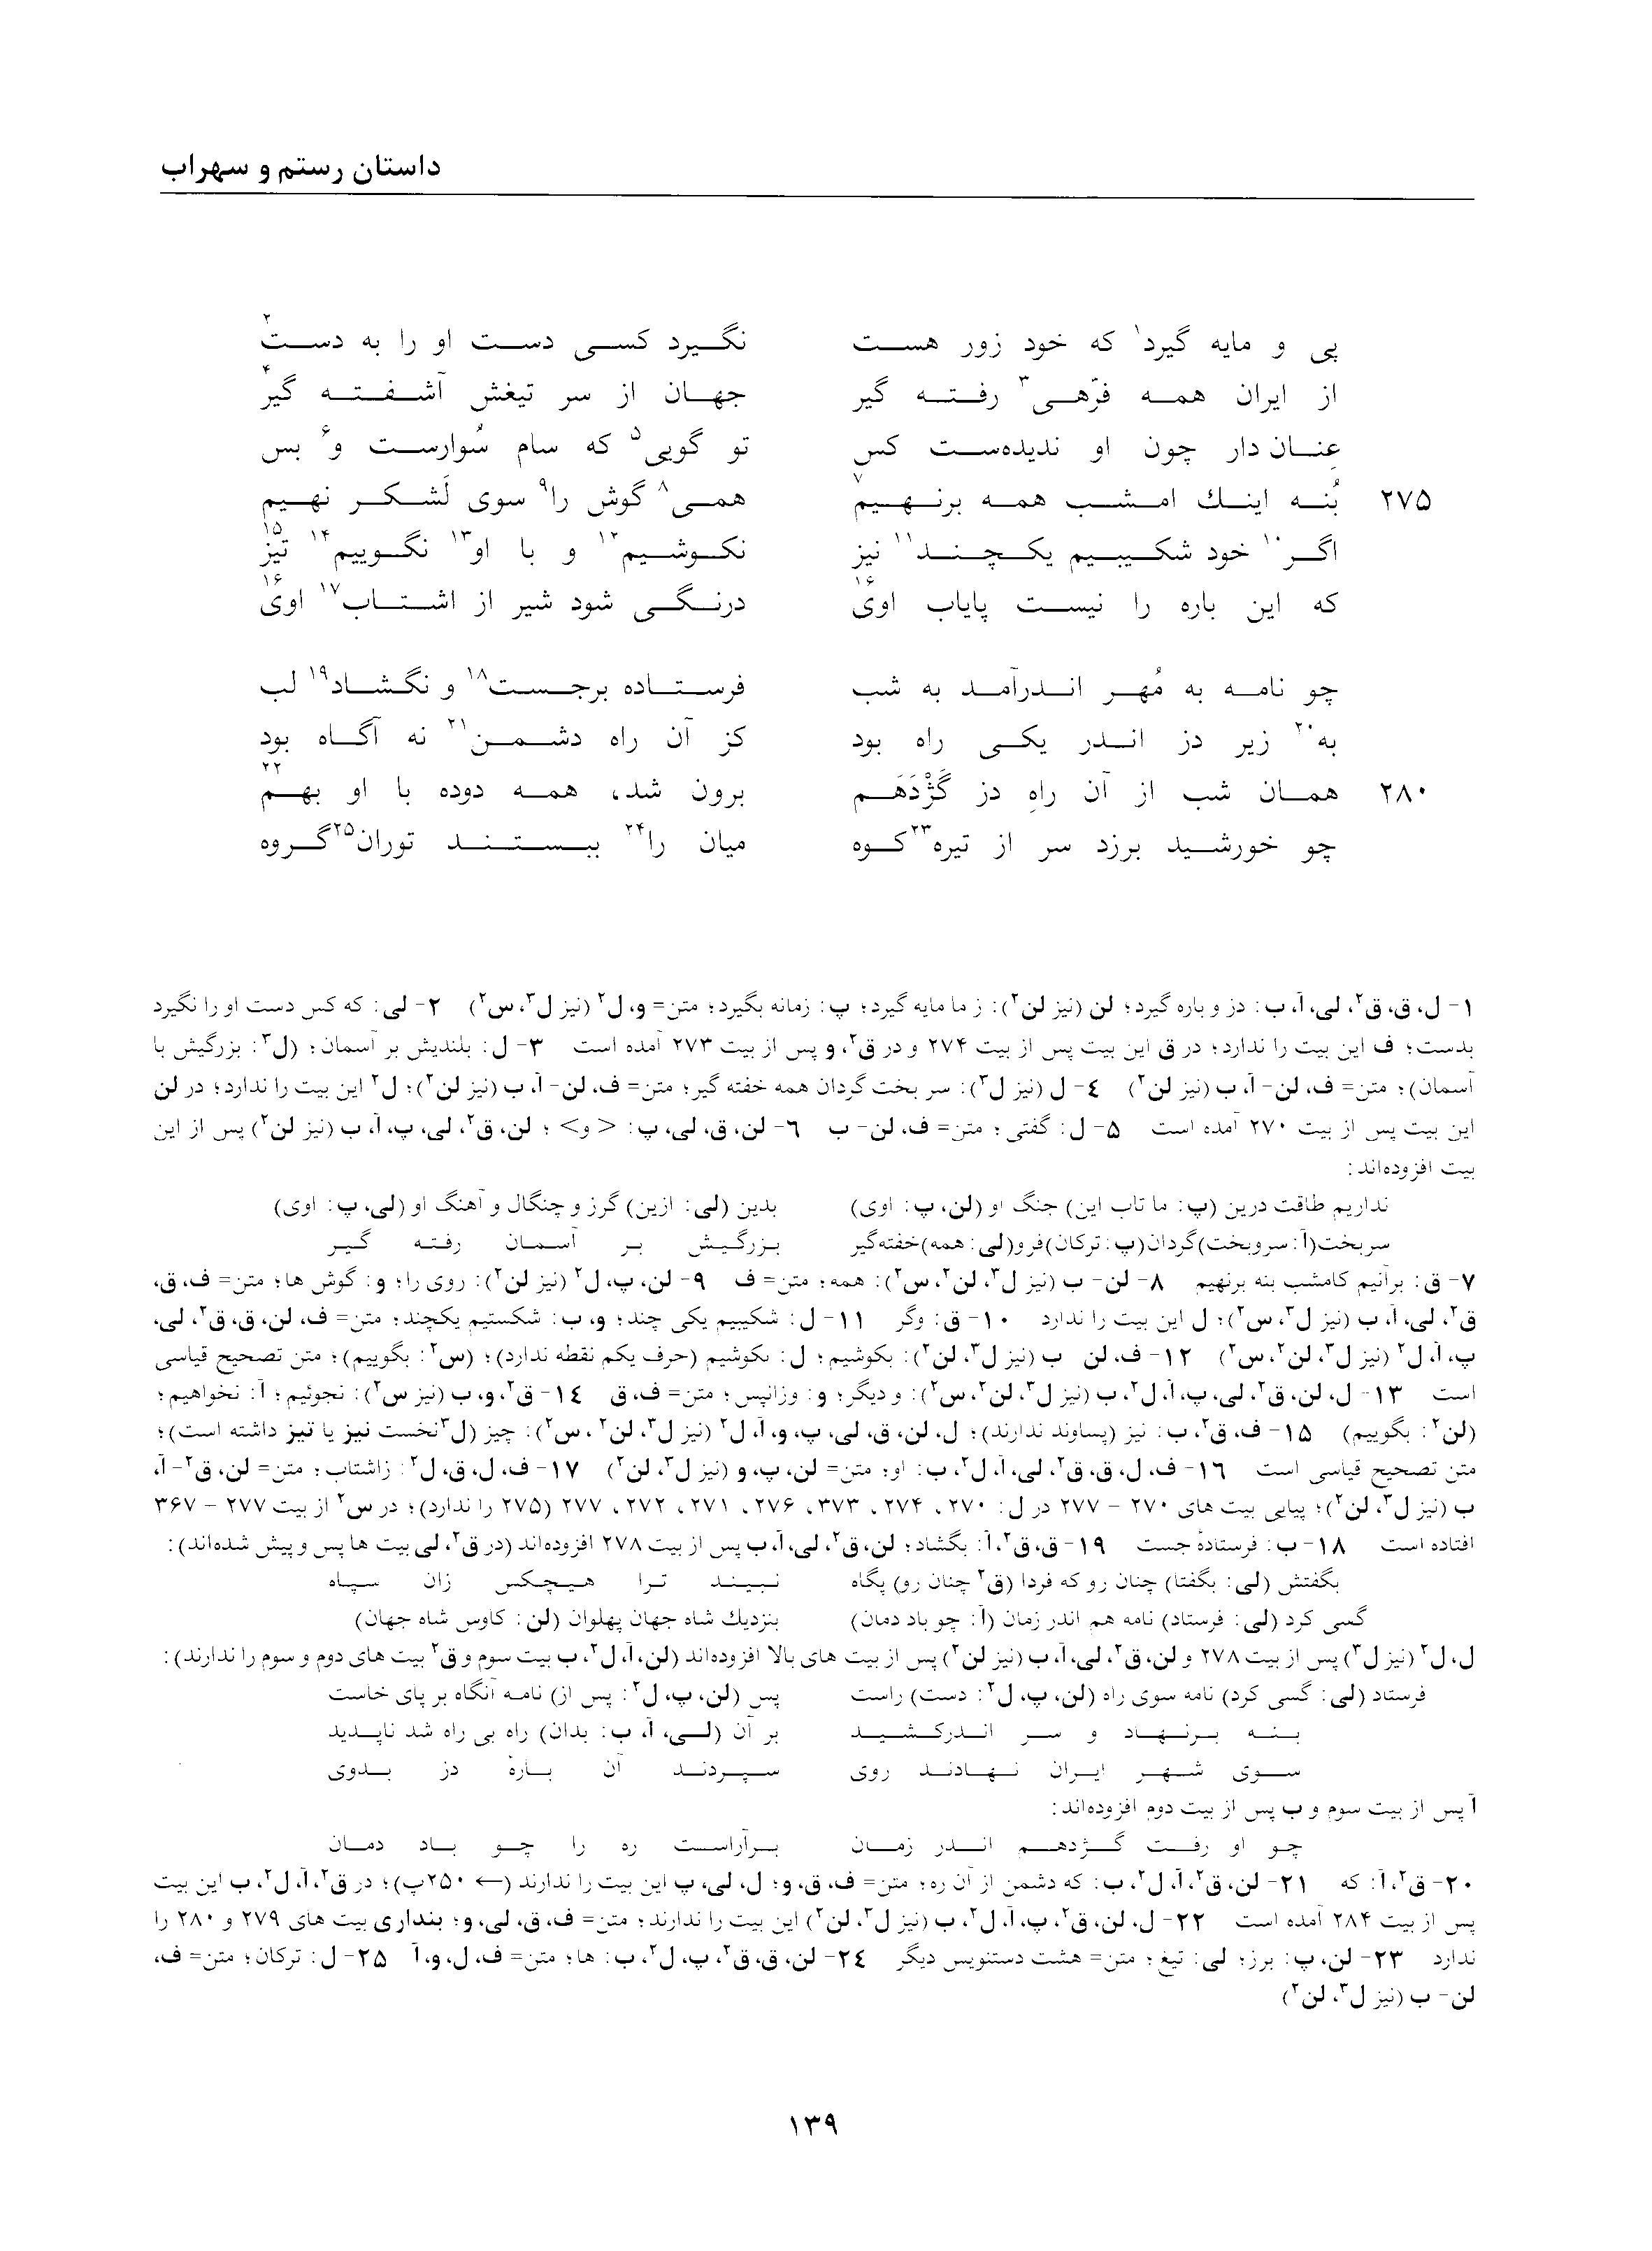 داستان رستم و سهراب
پی و مایه گیرد۱ که خود زور هست نگیرد کسی دست او را به دست۲
از ایران همه فرّهی۳ رفته گیر جهان از سر تیغش آشفته گیر۴
عِنان‌دار چون او ندیده‌ست کس تو گویی۵ که سام سُوارست و۶ بس
۲۷۵ بُنه اینك امشب همه برنهیم۷ همی۸ گوش را۹ سوی لَشکر نهیم
اگر۱۰ خود شکیبیم یکچند۱۱ نیز نکوشیم۱۲ و با او۱۳ نگوییم۱۴ تیز۱۵
که این باره را نیست پایاب اوی۱۶ درنگی شود شیر از اشتاب۱۷ اوی۱۶
چو نامه به مُهر اندرآمد به شب فرستاده برجست۱۸ و نگشاد۱۹ لب
به۲۰ زیر دز اندر یکی راه بود کز آن راه دشمن۲۱ نه آگاه بود
۲۸۰ همان شب از آن راهِ دز گَژْدَهَم برون شد، همه دوده با او بهم۲۲
چو خورشید برزد سر از تیره۲۳ کوه میان را۲۴ ببستند توران۲۵ گروه
۱- ل، ق، ق۲، لی، آ، ب: دز و باره گیرد؛ لن (نیز لن۲): ز ما مایه گیرد؛ پ: زمانه بگیرد؛ متن= و، ل۲ (نیز ل۳، س۲) ۲- لی: که کس دست او را نگیرد
بدست؛ ف این بیت را ندارد؛ در ق این بیت پس از بیت ۲۷۴ و در ق۲، و پس از بیت ۲۷۳ آمده است ۳- ل: بلندیش بر آسمان؛ (ل۳: بزرگیش با
آسمان)؛ متن= ف، لن- آ، ب (نیز لن۲) ٤- ل (نیز ل۳): سر بخت گردان همه خفته گیر؛ متن= ف، لن- آ، ب (نیز لن۲)؛ ل۲ این بیت را ندارد؛ در لن
این بیت پس از بیت ۲۷۰ آمده است ۵- ل: گفتی؛ متن= ف، لن- ب ٦- لن، ق، لی، پ: <و>؛ لن، ق۲، لی، پ، آ، ب (نیز لن۲) پس از این
بیت افزوده‌اند:
نداریم طاقت درین (پ: ما تاب این) جنگ او (لن، پ: اوی) بدین (لی: ازین) گرز و چنگال و آهنگ او (لی، پ: اوی)
سربخت (آ: سروبخت) گردان (پ: ترکان) فرو (لی: همه) خفته‌گیر بزرگیش بر آسمان رفته گیر
۷- ق: برآنیم کامشب بنه برنهیم ۸- لن- ب (نیز ل۳، لن۲، س۲): همه؛ متن= ف ۹- لن، پ، ل۲ (نیز لن۲): روی را؛ و: گوش ها؛ متن= ف، ق،
ق۲، لی، آ، ب (نیز ل۳، س۲)؛ ل این بیت را ندارد ۱۰- ق: وگر ۱۱- ل: شکیبیم یکی چند؛ و، ب: شکستیم یکچند؛ متن= ف، لن، ق، ق۲، لی،
پ، آ، ل۲ (نیز ل۳، لن۲، س۲) ۱۲- ف، لن ب (نیز ل۳، لن۲): بکوشیم؛ ل: ىکوشیم (حرف یکم نقطه ندارد)؛ (س۲: بگوییم)؛ متن تصحیح قیاسی
است ۱۳- ل، لن، ق۲، لی، پ، آ، ل۲، ب (نیز ل۳، لن۲، س۲): و دیگر؛ و: وزانپس؛ متن= ف، ق ١٤- ق۲، و، ب (نیز س۲): نجوئیم؛ آ: نخواهیم؛
(لن۲: بگوییم) ۱۵- ف، ق۲، ب: نیز (پساوند ندارند)؛ ل، لن، ق، لی، پ، و، آ، ل۲ (نیز ل۳، لن۲، س۲): چیز (ل۳ نخست نیز یا تیز داشته است)؛
متن تصحیح قیاسی است ١٦- ف، ل، ق، ق۲، لی، آ، ل۲، ب: او؛ متن= لن، پ، و (نیز ل۳، لن۲) ۱۷- ف، ل، ق، ل۲: زاشتاب؛ متن= لن، ق۲- آ،
ب (نیز ل۳، لن۲)؛ پیاپی بیت های ۲۷۰ - ۲۷۷ در ل: ۲۷۰، ۲۷۴، ۳۷۳، ۲۷۶، ۲۷۱، ۲۷۲، ۲۷۷ (۲۷۵ را ندارد)؛ در س۲ از بیت ۲۷۷ - ۳۶۷
افتاده است ۱۸- ب: فرستاده جست ۱۹- ق، ق۲، آ: بگشاد؛ لن، ق۲، لی، آ، ب پس از بیت ۲۷۸ افزوده‌اند (در ق۲، لی بیت ها پس و پیش شده‌اند):
بگفتش (لی: بگفتا) چنان رو که فردا (ق۲ چنان رو) پگاه نبیند ترا هیچکس زان سپاه
گسی کرد (لی: فرستاد) نامه هم اندر زمان (آ: چو باد دمان) بنزدیك شاه جهان پهلوان (لن: کاوس شاه جهان)
ل، ل۲ (نیز ل۳) پس از بیت ۲۷۸ و لن، ق۲، لی، آ، ب (نیز لن۲) پس از بیت های بالا افزوده‌اند (لن، آ، ل۲، ب بیت سوم و ق۲ بیت های دوم و سوم را ندارند):
فرستاد (لی: گسی کرد) نامه سوی راه (لن، پ، ل۲: دست) راست پس (لن، پ، ل۲: پس از) نامه آنگاه بر پای خاست
بنه برنهاد و سر اندرکشید بر آن (لی، آ، ب: بدان) راه بی راه شد ناپدید
سوی شهر ایران نهادند روی سپردند آن بارهٔ دز بدوی
آ پس از بیت سوم و ب پس از بیت دوم افزوده‌اند:
چو او رفت گژدهم اندر زمان برآراست ره را چو باد دمان
۲۰- ق۲، آ: که ۲۱- لن، ق۲، آ، ل۲، ب: که دشمن از آن ره؛ متن= ف، ق، و؛ ل، لی، پ این بیت را ندارند (← ۲۵۰پ)؛ در ق۲، آ، ل۲، ب این بیت
پس از بیت ۲۸۴ آمده است ۲۲- ل، لن، ق۲، پ، آ، ل۲، ب (نیز ل۳، لن۲) این بیت را ندارند؛ متن= ف، ق، لی، و؛ بنداری بیت های ۲۷۹ و ۲۸۰ را
ندارد ۲۳- لن، پ: برز؛ لی: تیغ؛ متن= هشت دستنویس دیگر ٢٤- لن، ق، ق۲، پ، ل۲، ب: ها؛ متن= ف، ل، و، آ ۲۵- ل: ترکان؛ متن= ف،
لن- ب (نیز ل۳، لن۲)
۱۳۹